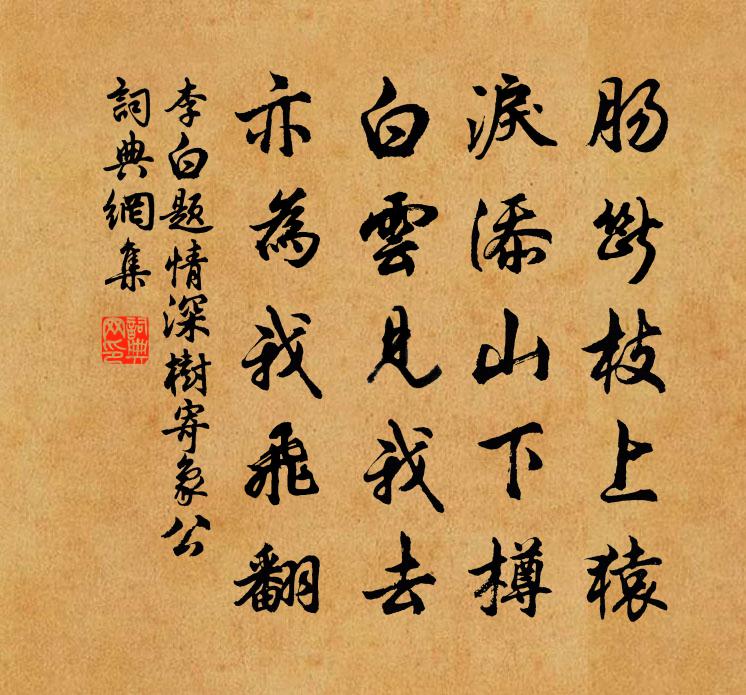 肠斷枝上猿
淚添山下樽
白雲見我去
亦為我飛翻
李白題情深樹寄象公
詞典網集
詞典網印